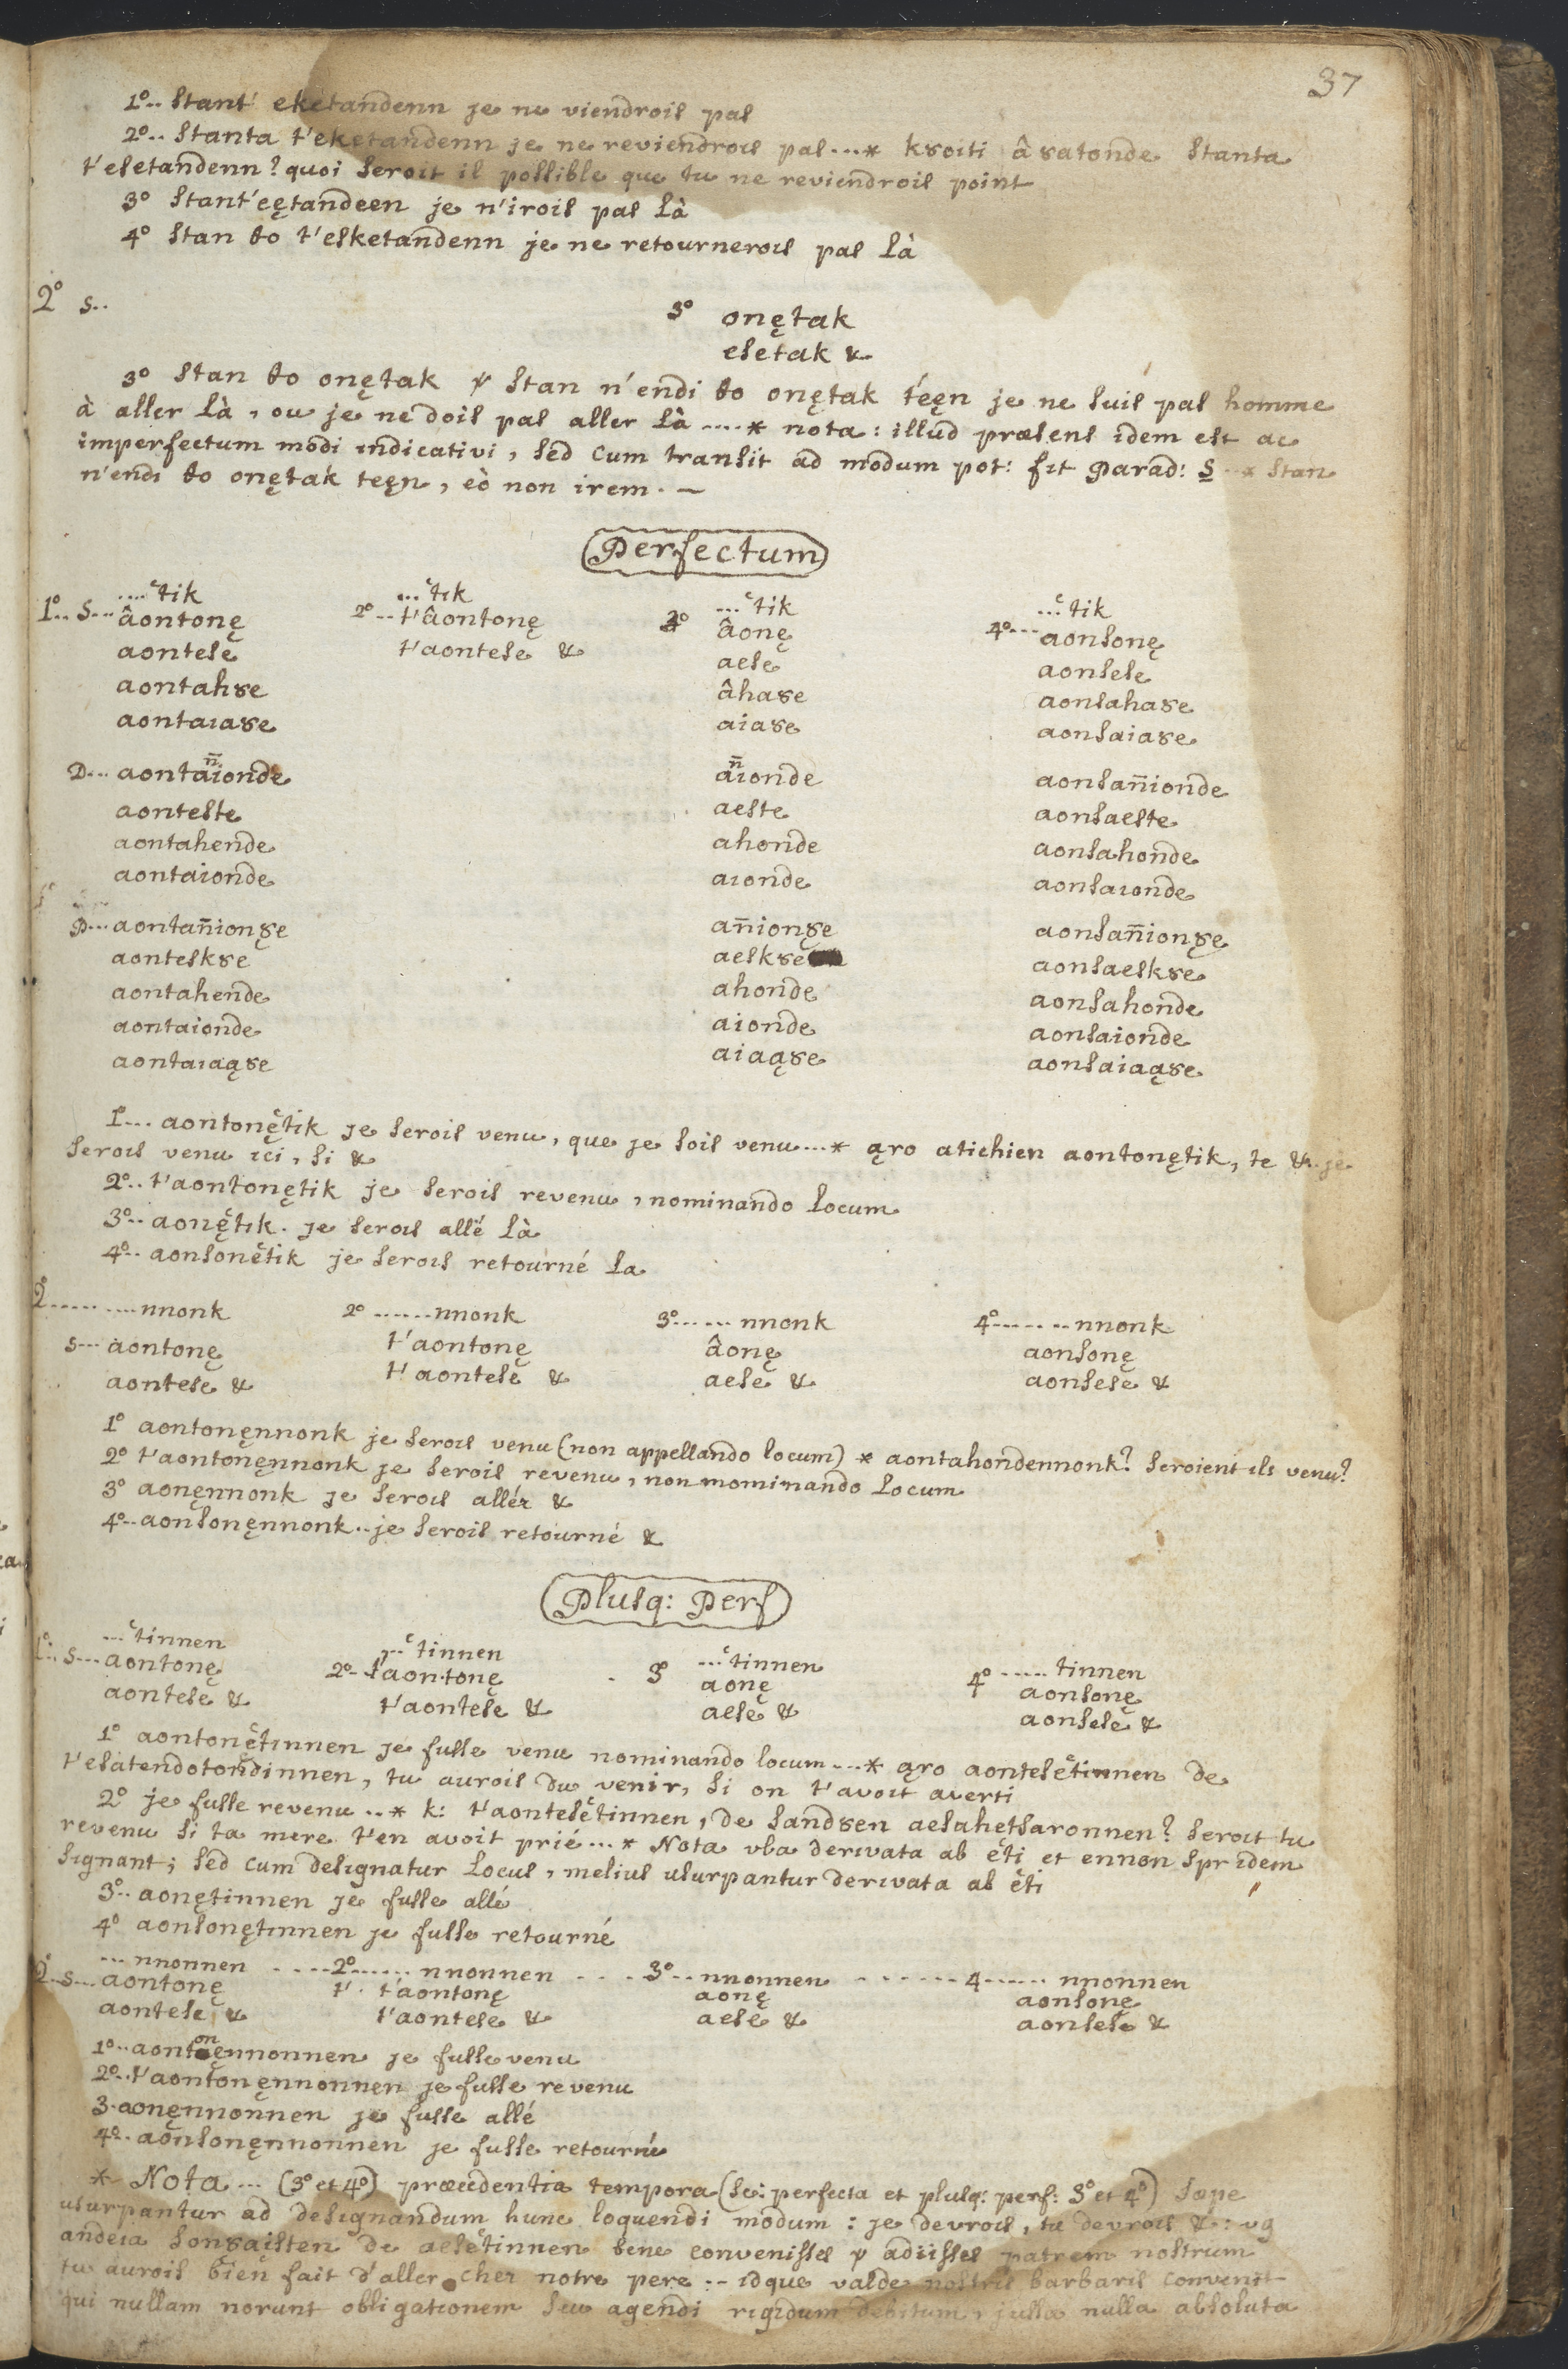 37
1°.. stant' eketandenn je ne viendrois pas
2°.. stanta t'eketandenn je ne reviendrois pas...* kȣoiti âȣatonde stanta
t'esetandenn? quoi seroit il possible que tu ne reviendrois point
3° stant'eętandeen je n'irois pas là
4° stan ȣo t'esketandenn je ne retournerois pas là
2° s..
3° onętak
esetak &
3° stan ȣo onętak ѱ stan n'endi ȣo onętak téęn je ne suis pas homme
à aller là, ou je ne dois pas aller là ....* nota: illud præsens idem est ac
imperfectum modi indicativi, sed cum transit ad modum pot: fit Parad: S..* stan
n'endi ȣo onętak tęęn, eò non irem. —
Perfectum
....ʿtik ...ʿtik ...ʿtik ...ʿtik
1°.. S... âontonę 2°.. t'âontonę 3° âonę 4°... aonsonę
aontese t'aontese & aese aonsese
aontahȣe âhaȣe aonsahaȣe
aontaiaȣe aiaȣe aonsaiaȣe
D... aontan̄ionde an̄ionde aonsan̄ionde
aonteste aeste aonsaeste
aontahende ahonde aonsahonde
aontaionde aionde aonsaionde
P... aontan̄ionȣe an̄ionȣe aonsan̄ionȣe
aonteskȣe aeskȣe aonsaeskȣe
aontahende ahonde aonsahonde
aontaionde aionde aonsaionde
aontaiaąȣe aiaąȣe aonsaiaąȣe
1°... aontonęʿtik je serois venu, que je sois venu...* ąro atichien aontonętik, te &.. je
serois venu ici, si &
2°.. t'aontonętik je serois revenu, nominando locum
3°.. aonęʿtik. je serois allé là
4°.. aonsonęʿtik je serois retourné la
2°.........nnonk 2° ......nnonk 3°...... nnonk 4°.......nnonk
s... aontonę t'aontonę âonę aonsonę
aontese & t'aontese & aese & aonsese &
1° aontonęnnonk je serois venu (non appellando locum) * aontahondennonk? seroient ils venu?
2° t'aontonęnnonk je serois revenu, non mominando locum
3° aonęnnonk je serois allér &
4°.. aonsonęnnonk.. je serois retourné &
Plusq: Perf
...ʿtinnen ...ʿtinnen ...ʿtinnen ..... tinnen
1°.. s... aontonę 2°.. t'aontonę 3° aonę 4° aonsonę
aontese & t'aontese & aese & aonsese &
1° aontonęʿtinnen je fusse venu nominando locum...* ąro aonteseʿtinnen de
t'esatendotondinnen, tu aurois du venir, si on t'avoit averti
2° je fusse revenu ..* k: t'aonteseʿtinnen, de sandȣen aesahetsaronnen? seroit tu
revenu si ta mere t'en avoit prié...* Nota vba derivata ab eʿti et ennon spr idem
signant; sed cum designatur locus, melius usurpantur derivata ab eʿti
3°.. aonętinnen je fusse allé
4° aonsonętinnen je fusse retourné
... nnonnen ....2°...... nnonnen ....3°.. nnonnen .......4...... nnonnen
2..s... aontonę t'. t'aontonę aonę aonsonę
aontese & t'aontese & aese & aonsese &
1°.. aontonęnnonnen je fusse venu
2°.. t'aontonęnnonnen je fusse revenu
3. aonęnnonnen je fusse allé
4°.. aonsonęnnonnen je fusse retourné
* Nota... (3° et 4°) præcedentia tempora (sc: perfecta et plusq: perf: 3° et 4°) sæpe
usurpantur ad designandum hunc loquendi modum: je devrois, tu devrois &: vg
andeia sonȣaisten de aeseʿtinnen bene convenisses ѱ adiisses patrem nostrum
tu aurois bien fait d'aller cher notre pere :- idque valde nostris barbaris convenit
qui nullam norunt obligationem seu agendi rigidum debitum, jussa nulla absoluta